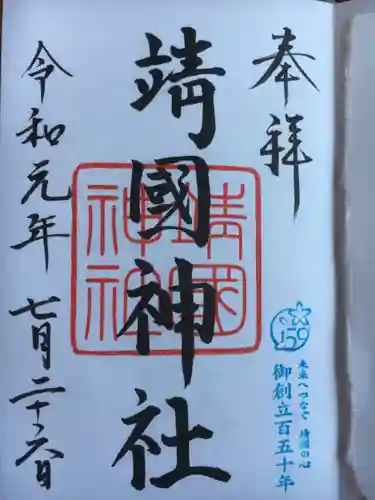 奉拝
靖國神社
靖國
神社
令和元年七月二十六日
150
未来へつなぐ 靖國の心
御創立百五十年